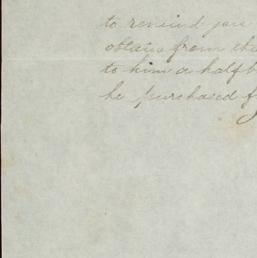 to remind you
obtain from the
to him a half b
he purchased f